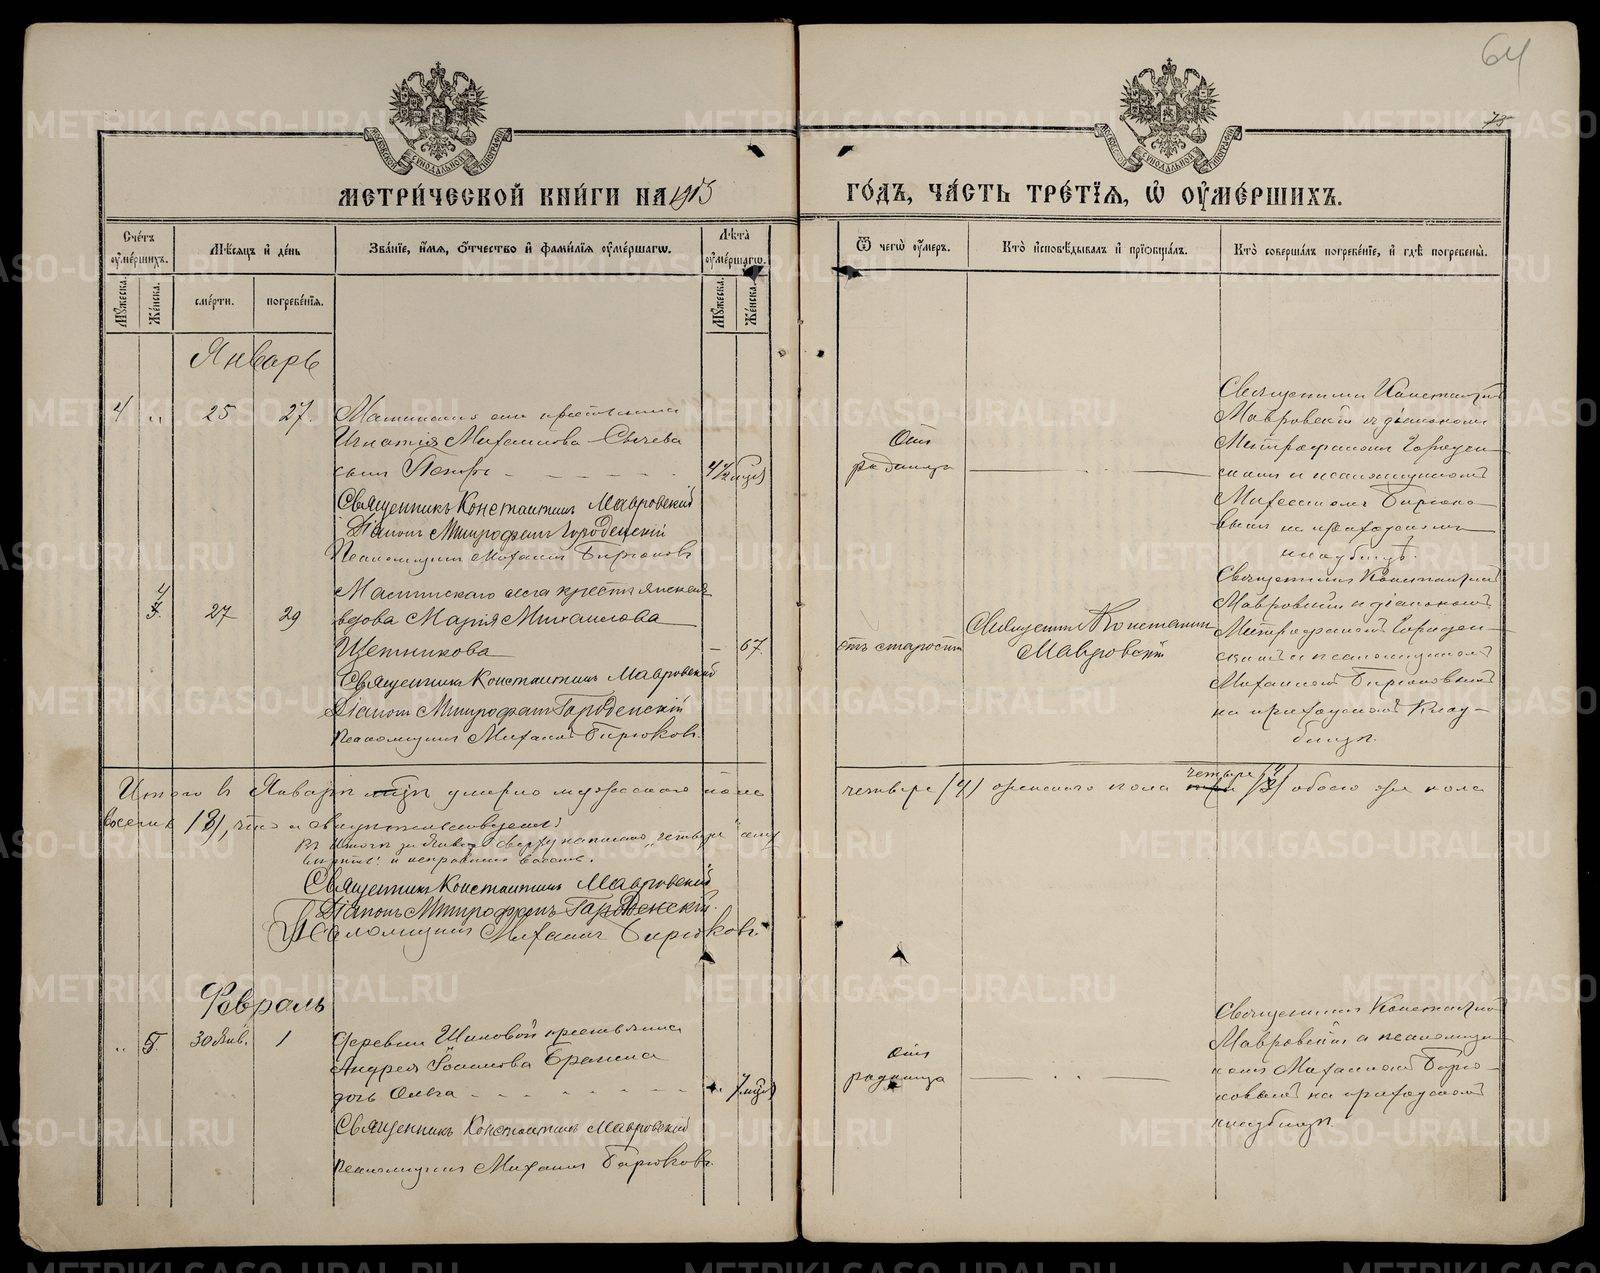 64
75
МЕТРИ́ЧЕСКОЙ КНИ́ГИ НА 1915
ГО́ДЪ, ЧА́СТЬ ТРЕ́ТІЯ, Ѡ҆ ОУ҆МЕ́РШИХЪ.
Сче́тъ оу҆ме́ршихъ.
Мѣ́сяцъ и҆ де́нь
Зва́нїе, и҆́мя, ѻ҆́тчество и҆ фами́лїя оу҆ме́ршагѡ.
Лѣ́та оу҆ме́ршагѡ.
Ѿ чегѡ̀ оу҆́меръ.
Кто̀ и҆сповѣ́дывалъ и҆ прїѡбща́лъ.
Кто̀ соверша́лъ погребе́нїе, и҆ гдѣ̀ погребены̀.
Мꙋ́жеска.
Же́нска.
сме́рти.
погребе́нїя.
Мꙋ́жеска.
Же́нска.
Январь
4 „ 25 27.
крестьянина
Игнатія Михаилова Сычева
сынъ Петръ 4½ мѣся
Священникъ Константинъ Мавровскій
Діаконъ Митрофанъ Городенскій
Псаломщикъ Михаилъ Бирюковъ
Отъ
родимца
Священникъ Константинъ
Мавровскій съ діакономъ
Митрофаномъ Городен-
скимъ и псаломщикомъ
Михаиломъ Бирюко-
вымъ на приходскомъ
кладбищѣ.
4 27 29
села крестьянская
вдова Марія Михаилова
Щетникова — 67.
Священникъ Константинъ Мавровскій
Діаконъ Митрофанъ Городенскій
Псаломщикъ Михаилъ Бирюковъ.
Отъ старости
Священникъ Константинъ
Мавровскій
Священникъ Константинъ
Мавровскій и діакономъ
Митрофаномъ Городен-
скимъ и псаломщикомъ
Михаиломъ Бирюковымъ
на приходскомъ клад-
бищѣ.
Итого въ Январѣ мѣсяцѣ умерло мужескаго пола
четыре /4/ женскаго пола четыре /4/ обоего же пола
восемь /8/, что и свидѣтельствуемъ:
Священникъ Константинъ Мавровскій
Діаконъ Митрофанъ Городенскій.
Псаломщикъ Михаилъ Бирюковъ.
Февраль
„ 5. 30 Янв. 1
Деревни Шиловой крестьянина
Андрея Іоаннова
дочь Ольга 7 мѣся
Священникъ Константинъ Мавровскій
Псаломщикъ Михаилъ Бирюковъ.
Отъ
родимца
Священникъ Константинъ
Мавровскій и псаломщи-
комъ Михаиломъ Бирю-
ковымъ на приходскомъ
кладбищѣ.
METRIKI.GASO-URAL.RU